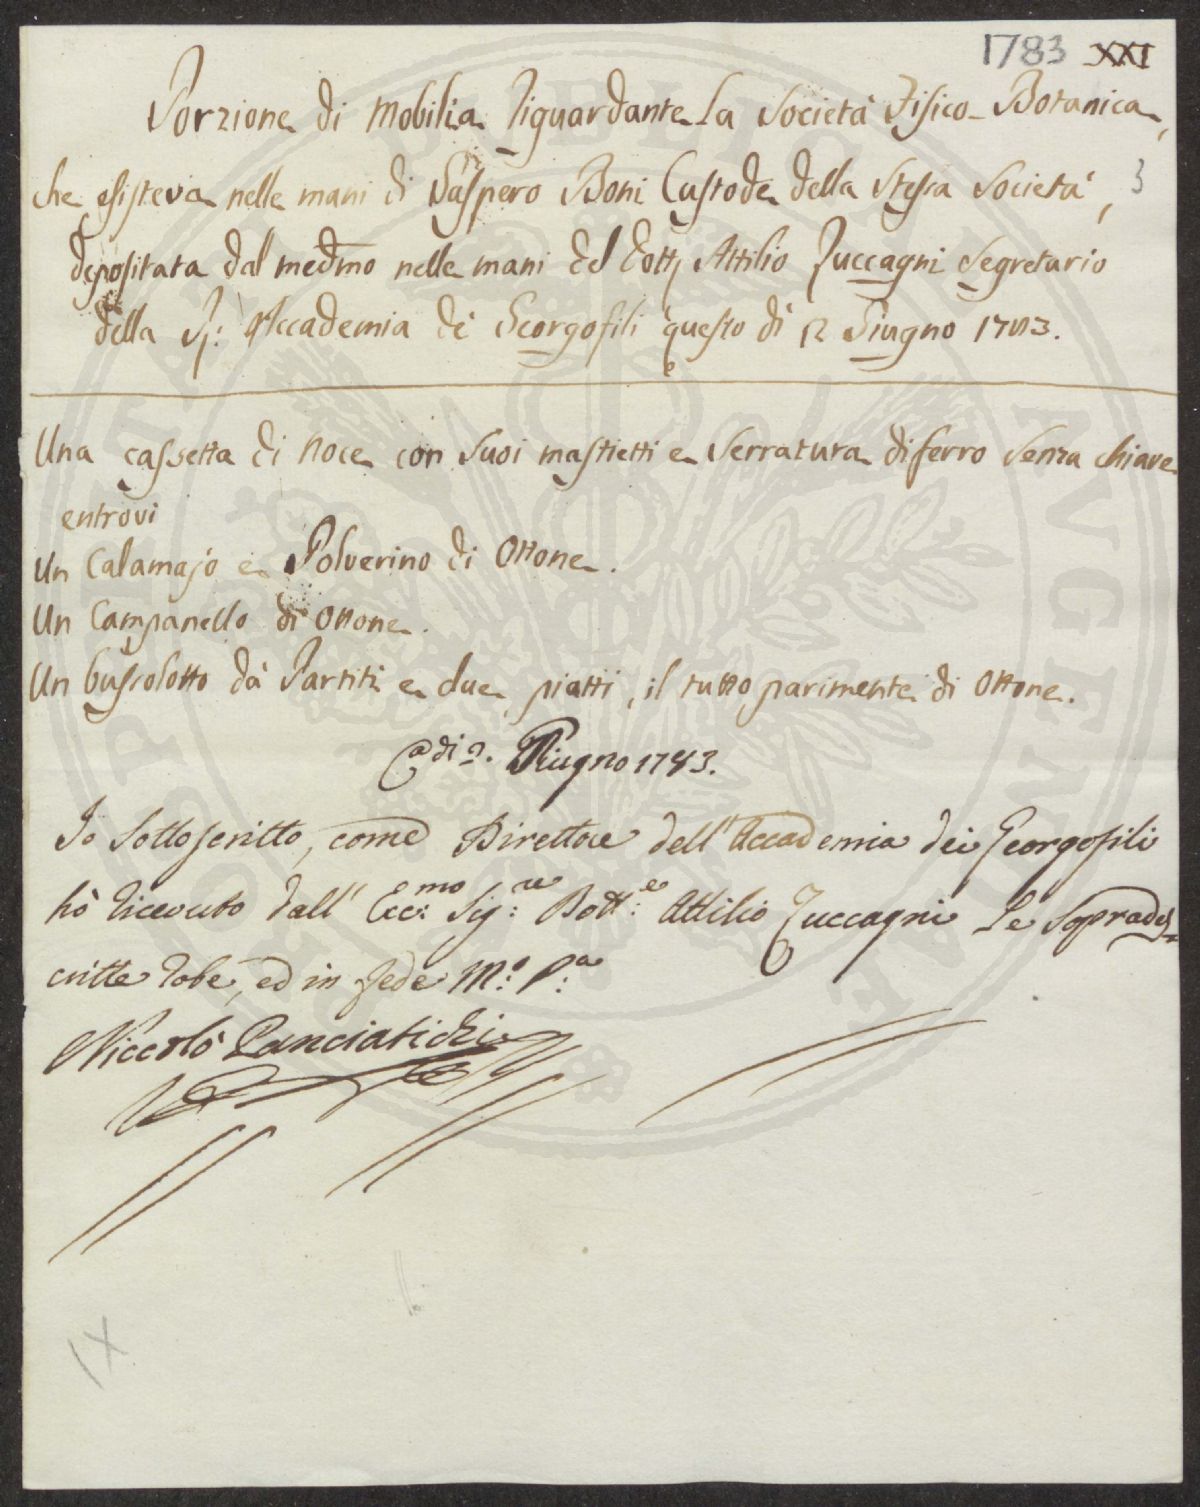 1783 XXI
Porzione di Mobilia Riguardante La Società Fisico-Botanica,
che esisteva nelle mani di Gaspero Boni Custode della stessa Società, 3
depositata dal medmo nelle mani del Dott. Attilio Zuccagni Segretario
della R: Accademia de Georgofili questo dì 12 Giugno 1783.
Una cassetta di Noce con suoi mastietti e Serratura di ferro senza chiave
entrovi
Un Calamajo e Polverino di Ottone.
Un Campanello di Ottone.
Un bussolotto da Partiti e due piatti, il tutto parimente di Ottone.
adi Giugno 1783.
Io Sottoscritto, come Direttore dell'Accademia dei Georgofili
hò ricevuto dall' Ecc:mo Sig:re Dott:e Attilio Zuccagni Le Sprades=
critte robe, ed in fede M:o P:a
Niccolò Panciatichi
IX